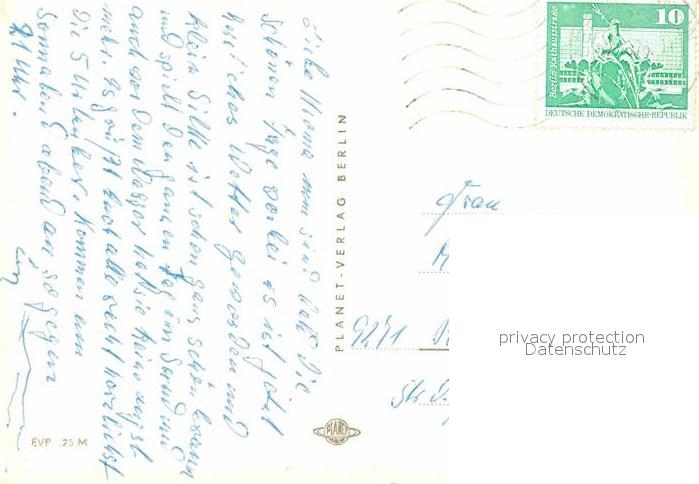 Liebe Mama nun sind bald die
schönen Tage vorbei es ist jetzt
herrliches Wetter geworden und
klein Silke ist schon ganz schön braun
und spielt den ganzen Tag im Sand und
auch vor dem Wasser hat sie keine Angst
mehr. Es grüßt Euch alle recht herzlichst
Die 5 Urlauber. Kommen am
Sonnabend abend an, so gegen
21 Uhr.
EVP .25 M
PLANET-VERLAG BERLIN
PLANET
10
Berlin Rathausstraße
DEUTSCHE DEMOKRATISCHE REPUBLIK
Frau
M
9271
Str. d.
privacy protection
Datenschutz